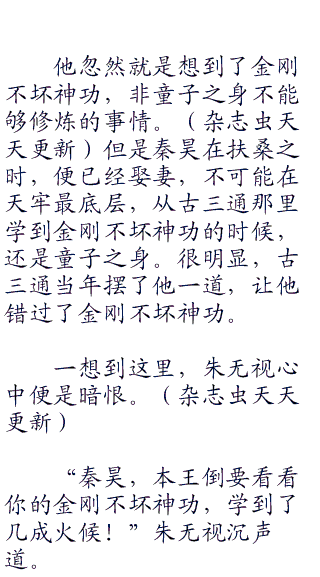 他忽然就是想到了金刚
不坏神功，非童子之身不能
够修炼的事情。（杂志虫天
天更新）但是秦昊在扶桑之
时，便已经娶妻，不可能在
天牢最底层，从古三通那里
学到金刚不坏神功的时候，
还是童子之身。很明显，古
三通当年摆了他一道，让他
错过了金刚不坏神功。
一想到这里，朱无视心
中便是暗恨。（杂志虫天天
更新）
“秦昊，本王倒要看看
你的金刚不坏神功，学到了
几成火候！”朱无视沉声
道。